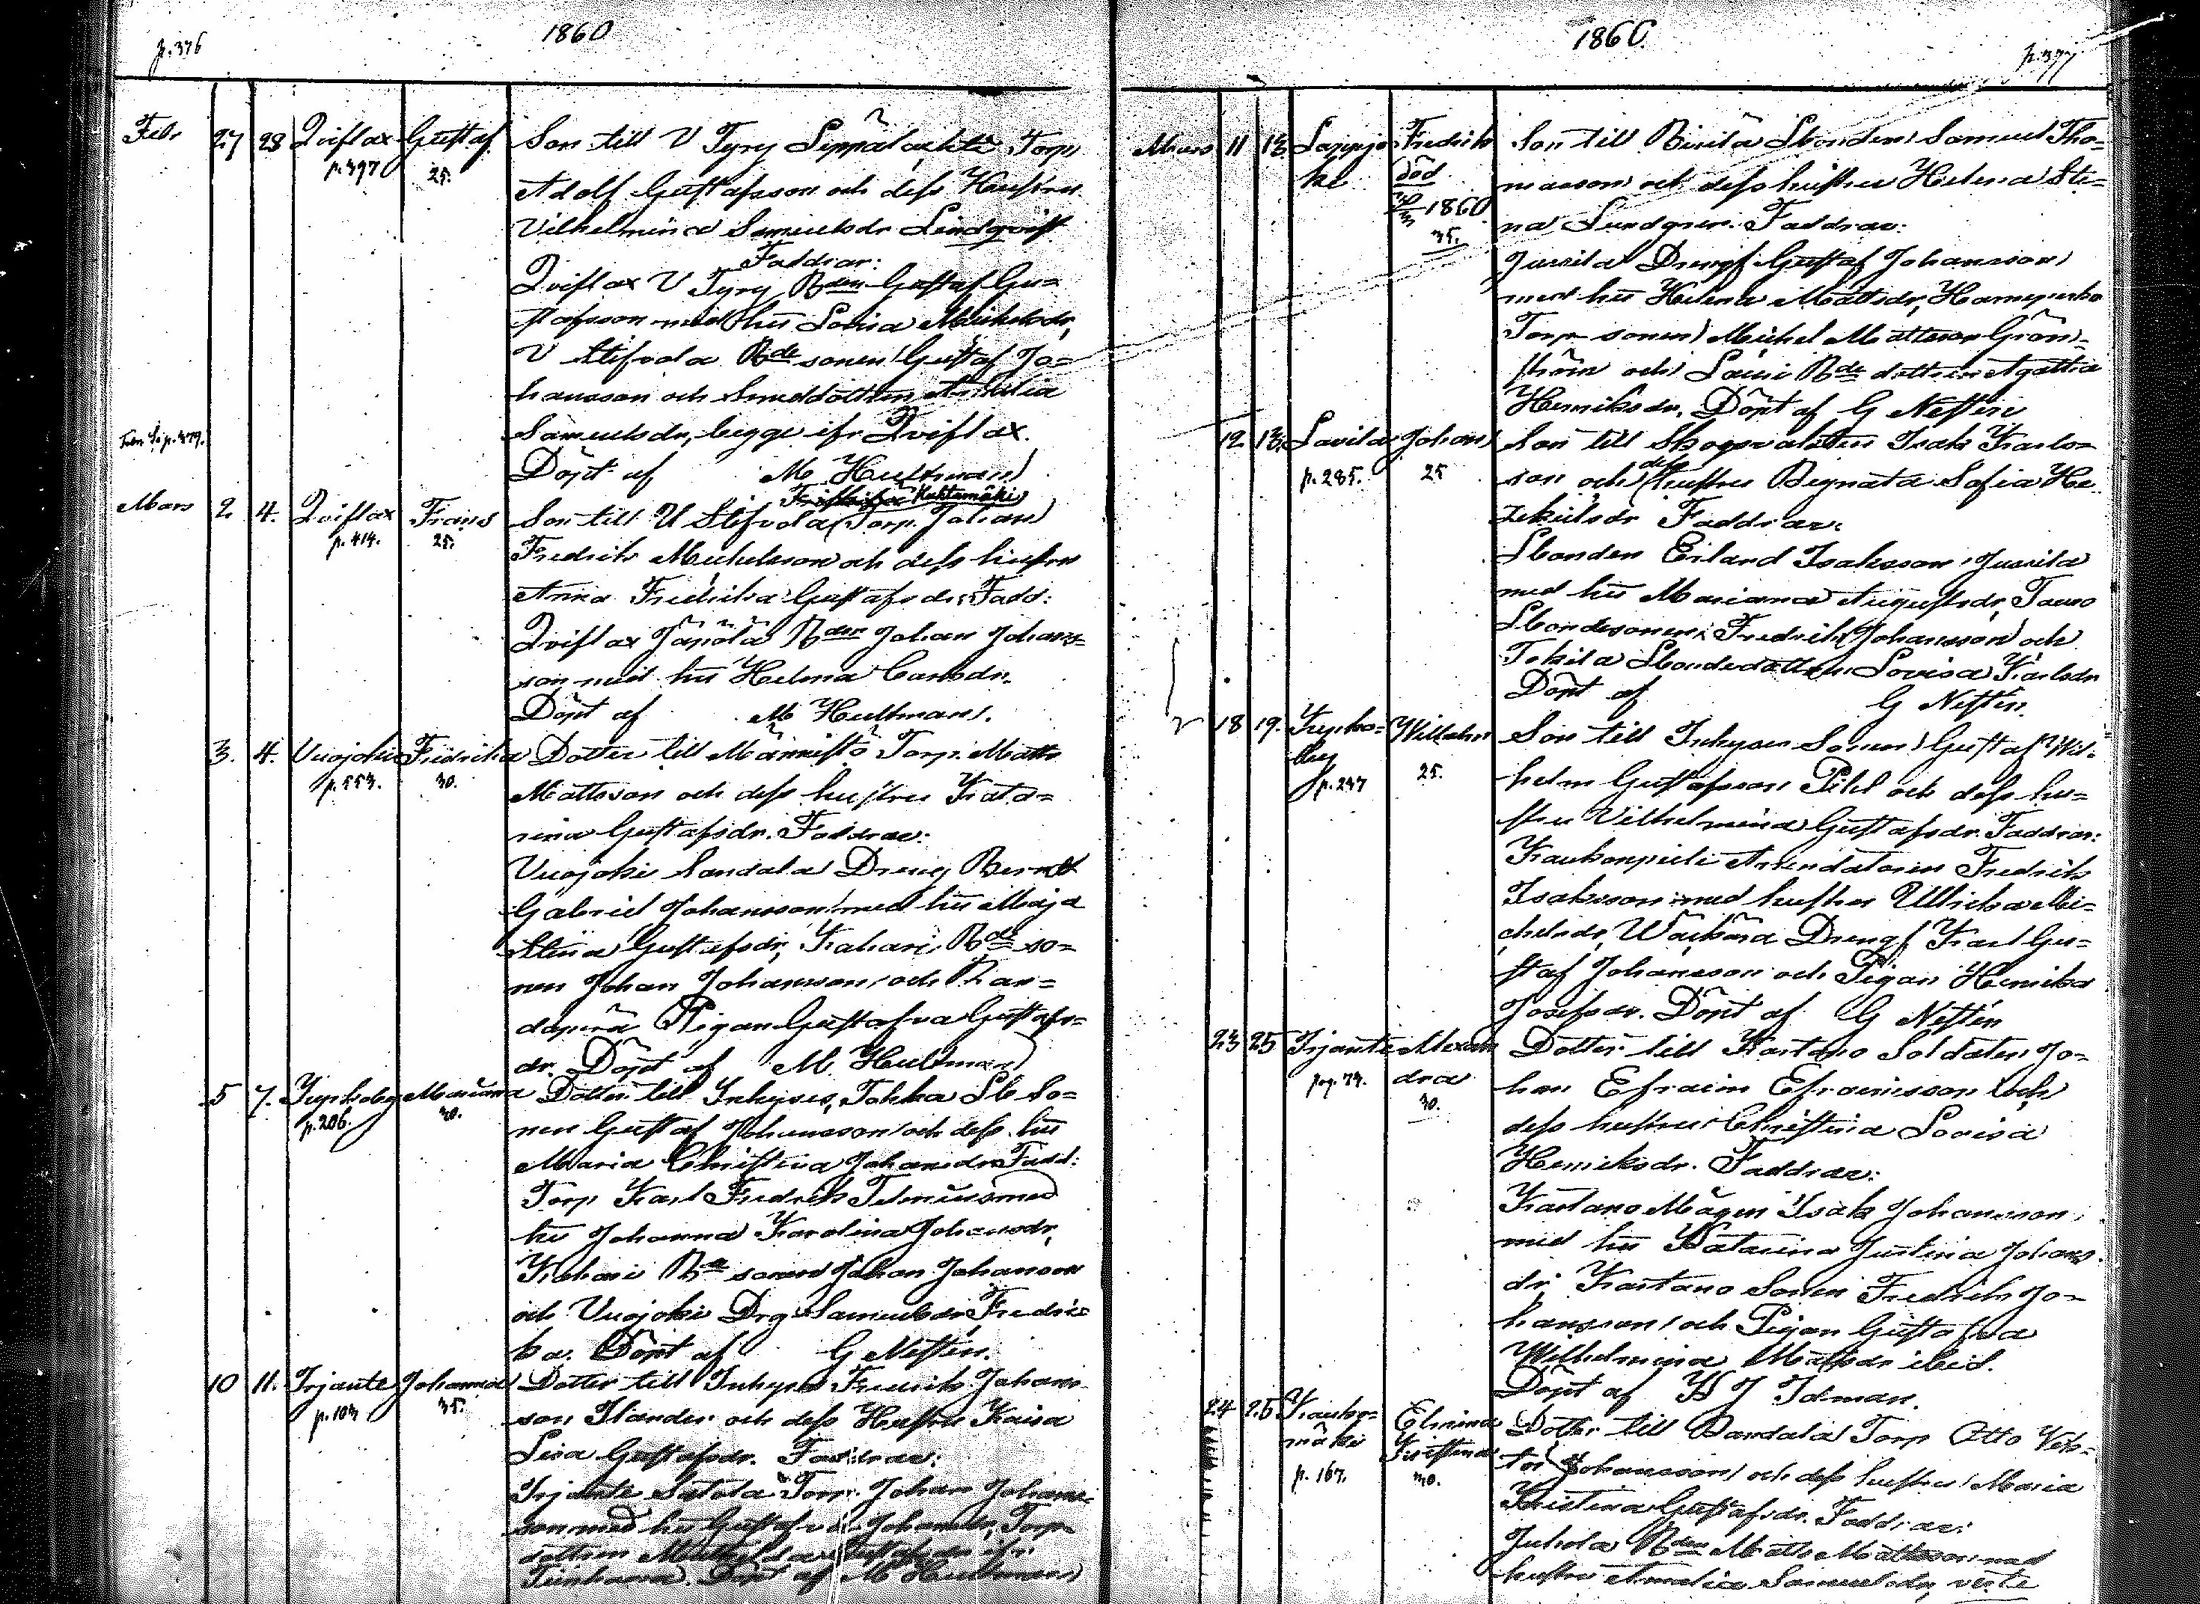 p. 376
1860
Febr 27 28 Qviflax Gustaf Son till V Tyry Torp.
p. 397 25. Adolf Gustafsson och dess Hustru
Vilhelmina Samuelsdr Lindqvist
Faddrar:
Qviflax V Tyry Bden Gustaf Gu=
stafsson med hu Lovisa Michelsdr,
V Stifvola Bde sonen Gustaf Jo=
hansson och
Samuelsdr, begge ifr Qviflax.
Döpt af M Hultman
Kuhtamäki
Mars 2 4. Qviflax Frans Son till V Stifvola Torp. Johan
p. 414. 25. Fredrik Michelsson och dess hustru
Anna Fredrika Gustafsdr. Fadd:
Qviflax Jänölä Bden Johan Johans=
son med hu Helena Carlsdr.
Döpt af M Hultman.
3. 4. Vuojoki Fredrika Dotter till Männistö Torp. Matts
p. 553. 30. Mattsson och dess hustru Kata=
rina Gustafsdr. Faddrar:
Vuojoki Sandala Dreng Bernt
Gabriel Johansson med hu Maja
Stina Gustafsdr, Kahari Bde so=
nen Johan Johansson och Ran=
daperä Pigan Gustafva Gustafs=
dr. Döpt af M. Hultman
5 7. Kuprkoby Mariana Dotter till Inhyses, Tokka Sb So=
p. 206. 30. nen Gustaf Johansson och dess hu
Maria Christina Johansdr Fadd:
Torp Karl Fredrik med
hu Johanna Karolina Johansdr,
Kahari Bde sonen Johan Johansson
och Vuojoki Drg Samuelsdr Fredri=
ka. Döpt af G Nestén.
10 11. Irjante Johanna Dotter till Inhyses Fredrik Johans
p. 103 35. son och dess Hustru Kaisa
Lisa Gustafsdr. Faddrar:
Irjante Torp. Johan Johans=
son med hu Gustafva Johansdr, Torp
dottren ifr
Döpt af M Hultman
1860.
p. 377
Mars 11 13 Lappijo Fredrik Son till Sbonden Samuel Tho=
ki död masson och dess hustru Helena Sti=
1860 na Lundgren. Faddrar:
35. Jussila Drengf Gustaf Johansson
med hu Helena Mattsdr,
Torp sonen Michel Mattsson Grön=
ström och Bde dottren Agatha
Henriksdr. Döpt af G Nestén
12 13 Lavila Johan Son till Skogsvaktten Isak Karls=
p. 285. 25 son och dess hustru Regnata Sofia He=
zekielsdr Faddrar:
Sbonden Erland Isaksson Jussila
med hu Mariana Augustsdr, Tauno
Sbondesonen Fredrik Johansson och
Tokila Sbondedottren Lovisa Karlsdr
Döpt af G Nestén.
18 19. Kuprko= Wilhelm Son till Inhyses Sonen Gustaf Wil=
by p. 247 25. helm Gustafsson Pihl och dess hu=
stru Vilhelmina Gustafsdr. Faddrar:
Kaukonpieli Arrendatoren Fredrik
Isaksson med hustru Ulrika Mi=
chelsdr, Drengf Karl Gu=
staf Johansson och Pigan Henrika
Josefsdr. Döpt af G Nestén
23 25 Irjante Alexan Dotter till Kartano Soldaten Jo=
pag. 74. dra han Efraim Efraimsson och
30. dess hustru Christina Lovisa
Henriksdr. Faddrar:
Kartano Mågen Isak Johansson
med hu Katarina Justina Johans
dr, Kartano Sonen Fredrik Jo=
hansson och Pigan Gustafva
Wilhelmina Mattsdr ibid.
Döpt af K J Idman.
24 25 Kauko= Elviina Dotter till Sandala Torp Otto Vik=
mäki Kristina tor Johansson och dess hustru Maria
p. 167. 30. Kristina Gustafsdr. Faddrar:
Juhola Bden Matts Mattsson med
hustru Amalia Samuelsdr,